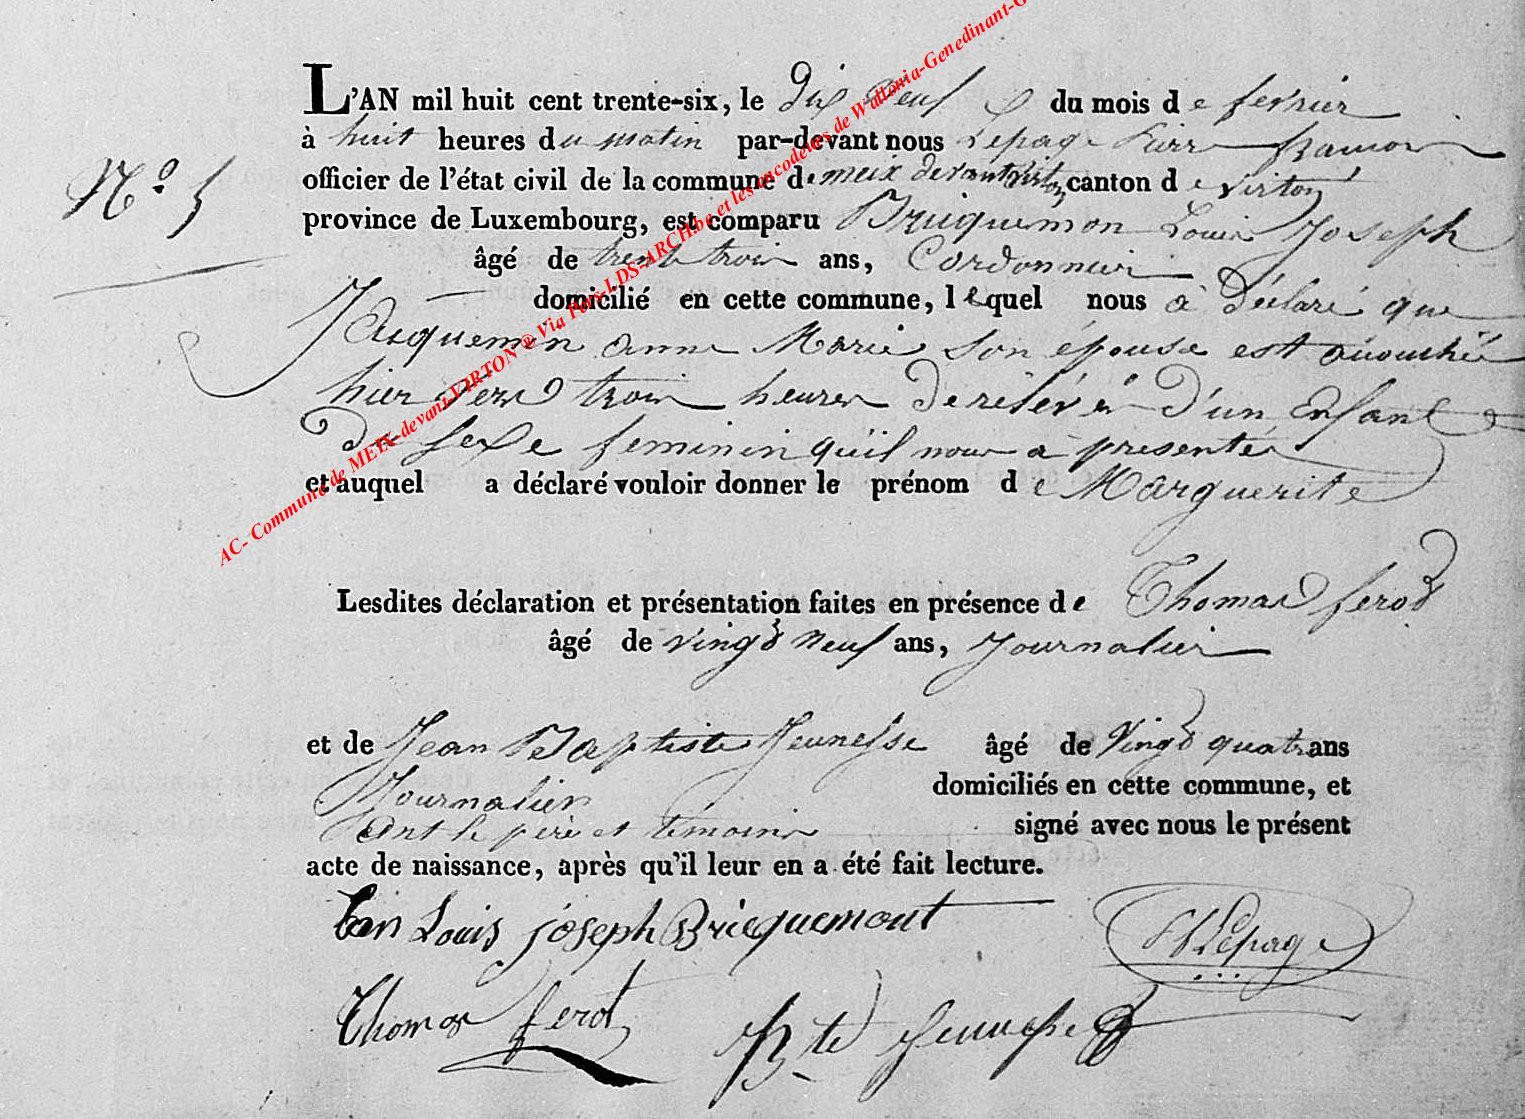 L'AN mil huit cent trente-six, le dix neuf du mois de fevrier
N.o 5
à huit heures du matin par-devant nous Lepage Pierre
officier de l'état civil de la commune de meix devant Virton canton de virton
province de Luxembourg, est comparu Bricquemon Louis Joseph
âgé de trente trois ans, Cordonnier
domicilié en cette commune, lequel nous à déclaré que
Jacquemin anne Marie son épouse est accouchée
hier vers trois heures de relévér d'un Enfant
du sexe feminin qu'il nous a presenté
et auquel a déclaré vouloir donner le prénom de Marguerite
Lesdites déclaration et présentation faites en présence de Thomas ferod
âgé de vingd neuf ans, Journalier
et de Jean Baptiste Jeunesse âgé de Vingd quatre ans
Journalier domiciliés en cette commune, et
Ont le père et témoins signé avec nous le présent
acte de naissance, après qu'il leur en a été fait lecture.
Louis joseph Bricquemont
Lepage
Thomas ferot
Bte Jeunesse
AC- Commune de MEIX-devant-VIRTON ® Via Pays-LDS-ARCH.be et les encodeurs de Wallonia-Genedinant-G